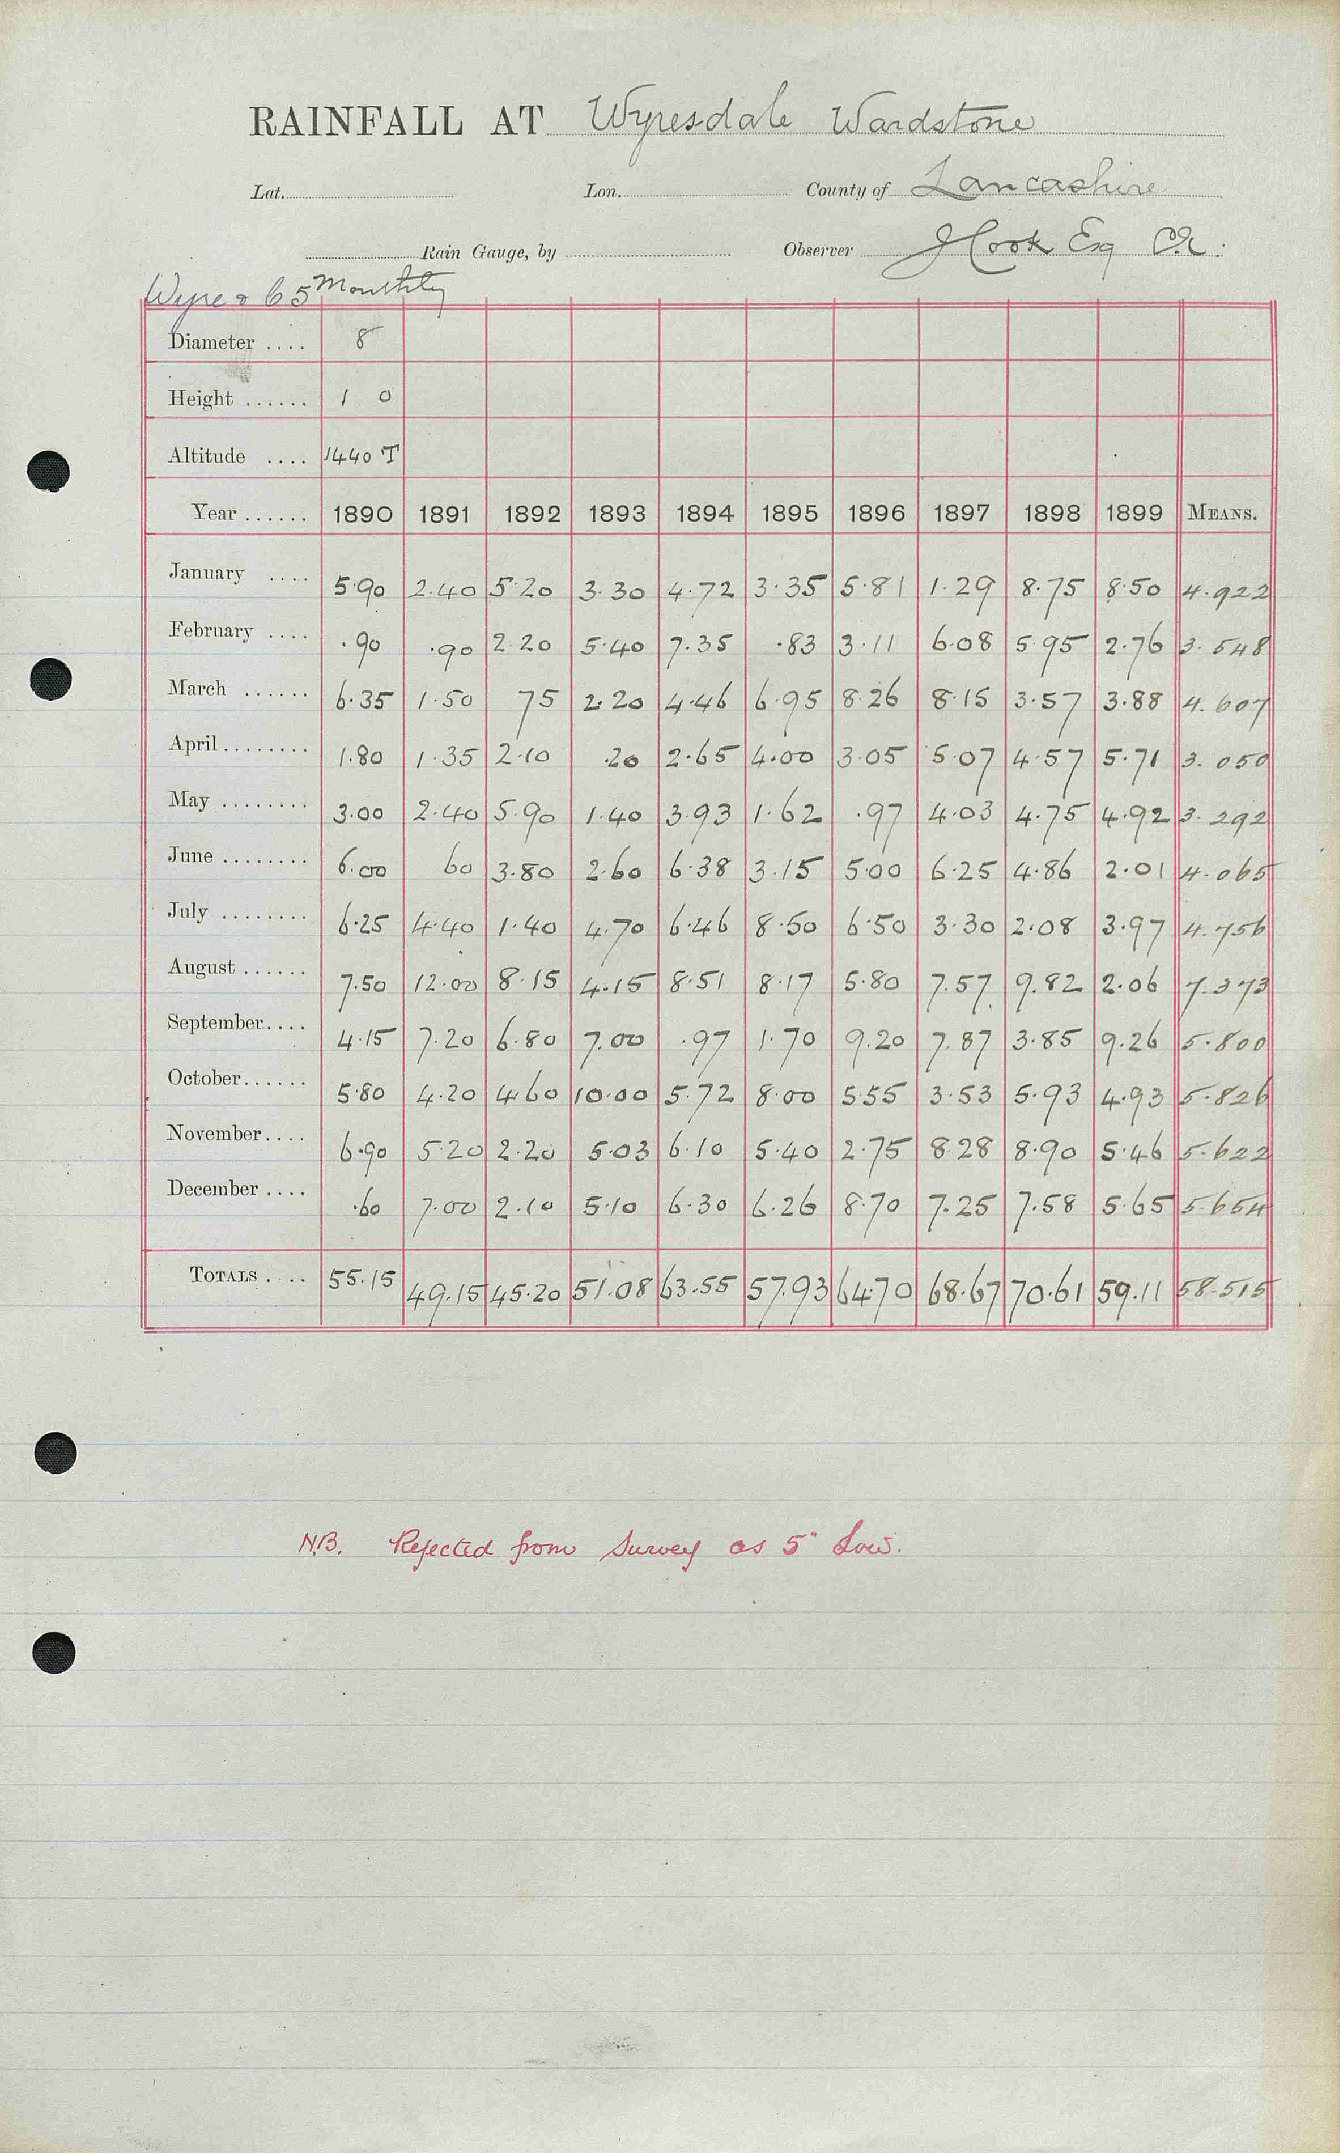 RAINFALL AT Wyresdale Wardstone
Lat. Lon. County of Lancashire
Rain Gauge, by Observer J Cook Esq C.E.
Wyre & 65 Monthly
Diameter .... 8
Height ...... 1 0
Altitude .... 1440 T
Year ...... 1890 1891 1892 1893 1894 1895 1896 1897 1898 1899 MEANS.
January .... 5.90 2.40 5.20 3.30 4.72 3.35 5.81 1.29 8.75 8.50 4.922
February .... .90 .90 2.20 5.40 7.35 .83 3.11 6.08 5.95 2.76 3.548
March ...... 6.35 1.50 75 2.20 4.46 6.95 8.26 8.15 3.57 3.88 4.607
April........ 1.80 1.35 2.10 .20 2.65 4.00 3.05 5.07 4.57 5.71 3.050
May ........ 3.00 2.40 5.90 1.40 3.93 1.62 .97 4.03 4.75 4.92 3.292
June ........ 6.00 60 3.80 2.60 6.38 3.15 5.00 6.25 4.86 2.01 4.065
July ........ 6.25 4.40 1.40 4.70 6.46 8.50 6.50 3.30 2.08 3.97 4.756
August ...... 7.50 12.00 8.15 4.15 8.51 8.17 5.80 7.57 9.82 2.06 7.373
September.... 4.15 7.20 6.80 7.00 .97 1.70 9.20 7.87 3.85 9.26 5.800
October...... 5.80 4.20 4.60 10.00 5.72 8.00 5.55 3.53 5.93 4.93 5.826
November.... 6.90 5.20 2.20 5.03 6.10 5.40 2.75 8.28 8.90 5.46 5.622
December .... .60 7.00 2.10 5.10 6.30 6.26 8.70 7.25 7.58 5.65 5.654
TOTALS .... 55.15 49.15 45.20 51.08 63.55 57.93 64.70 68.67 70.61 59.11 58.515
N.B. Rejected from Survey as 5" Low.